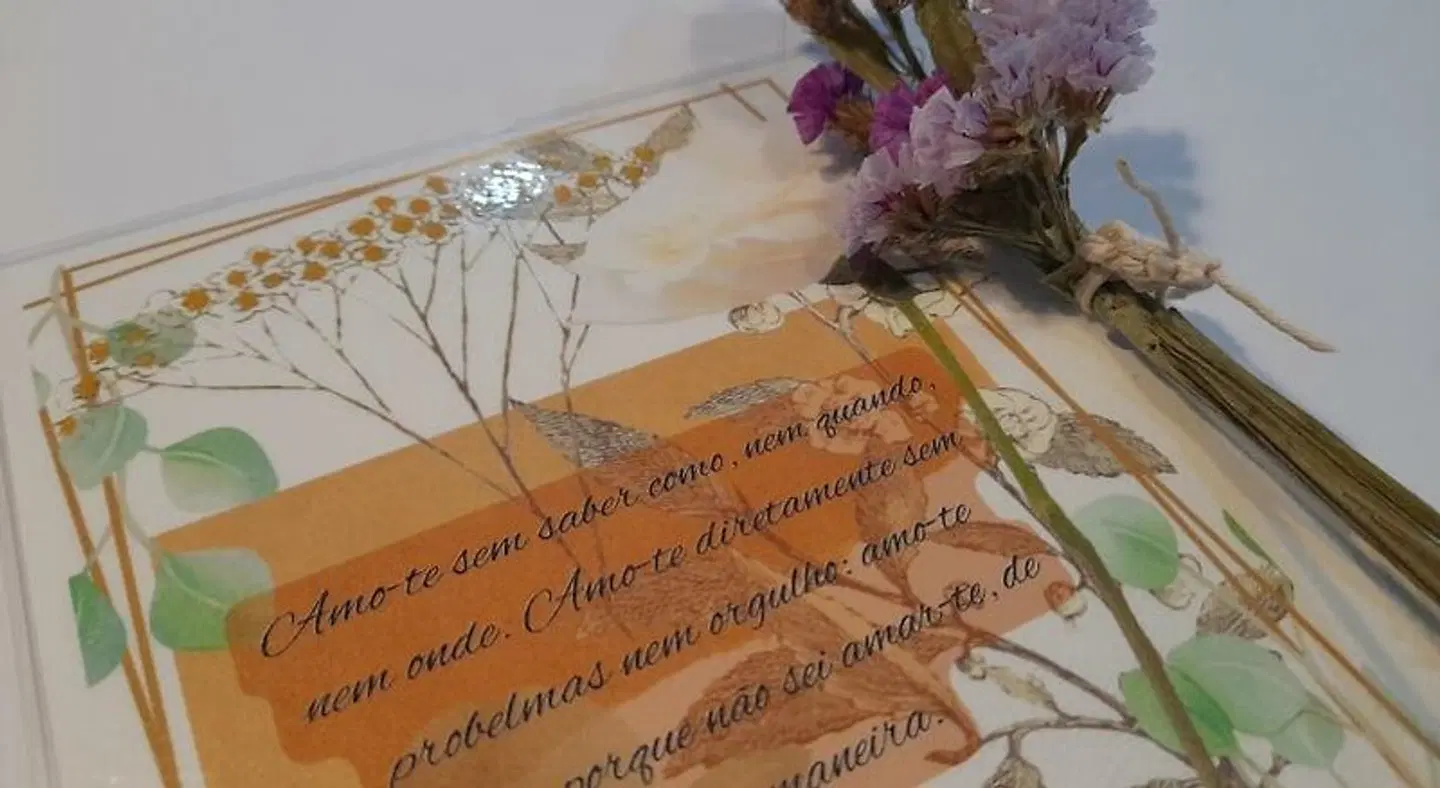 Amo-te sem saber como, nem quando,
nem onde. Amo-te diretamente sem
probelmas nem orgulho: amo-te
porque não sei amar-te, de
maneira.